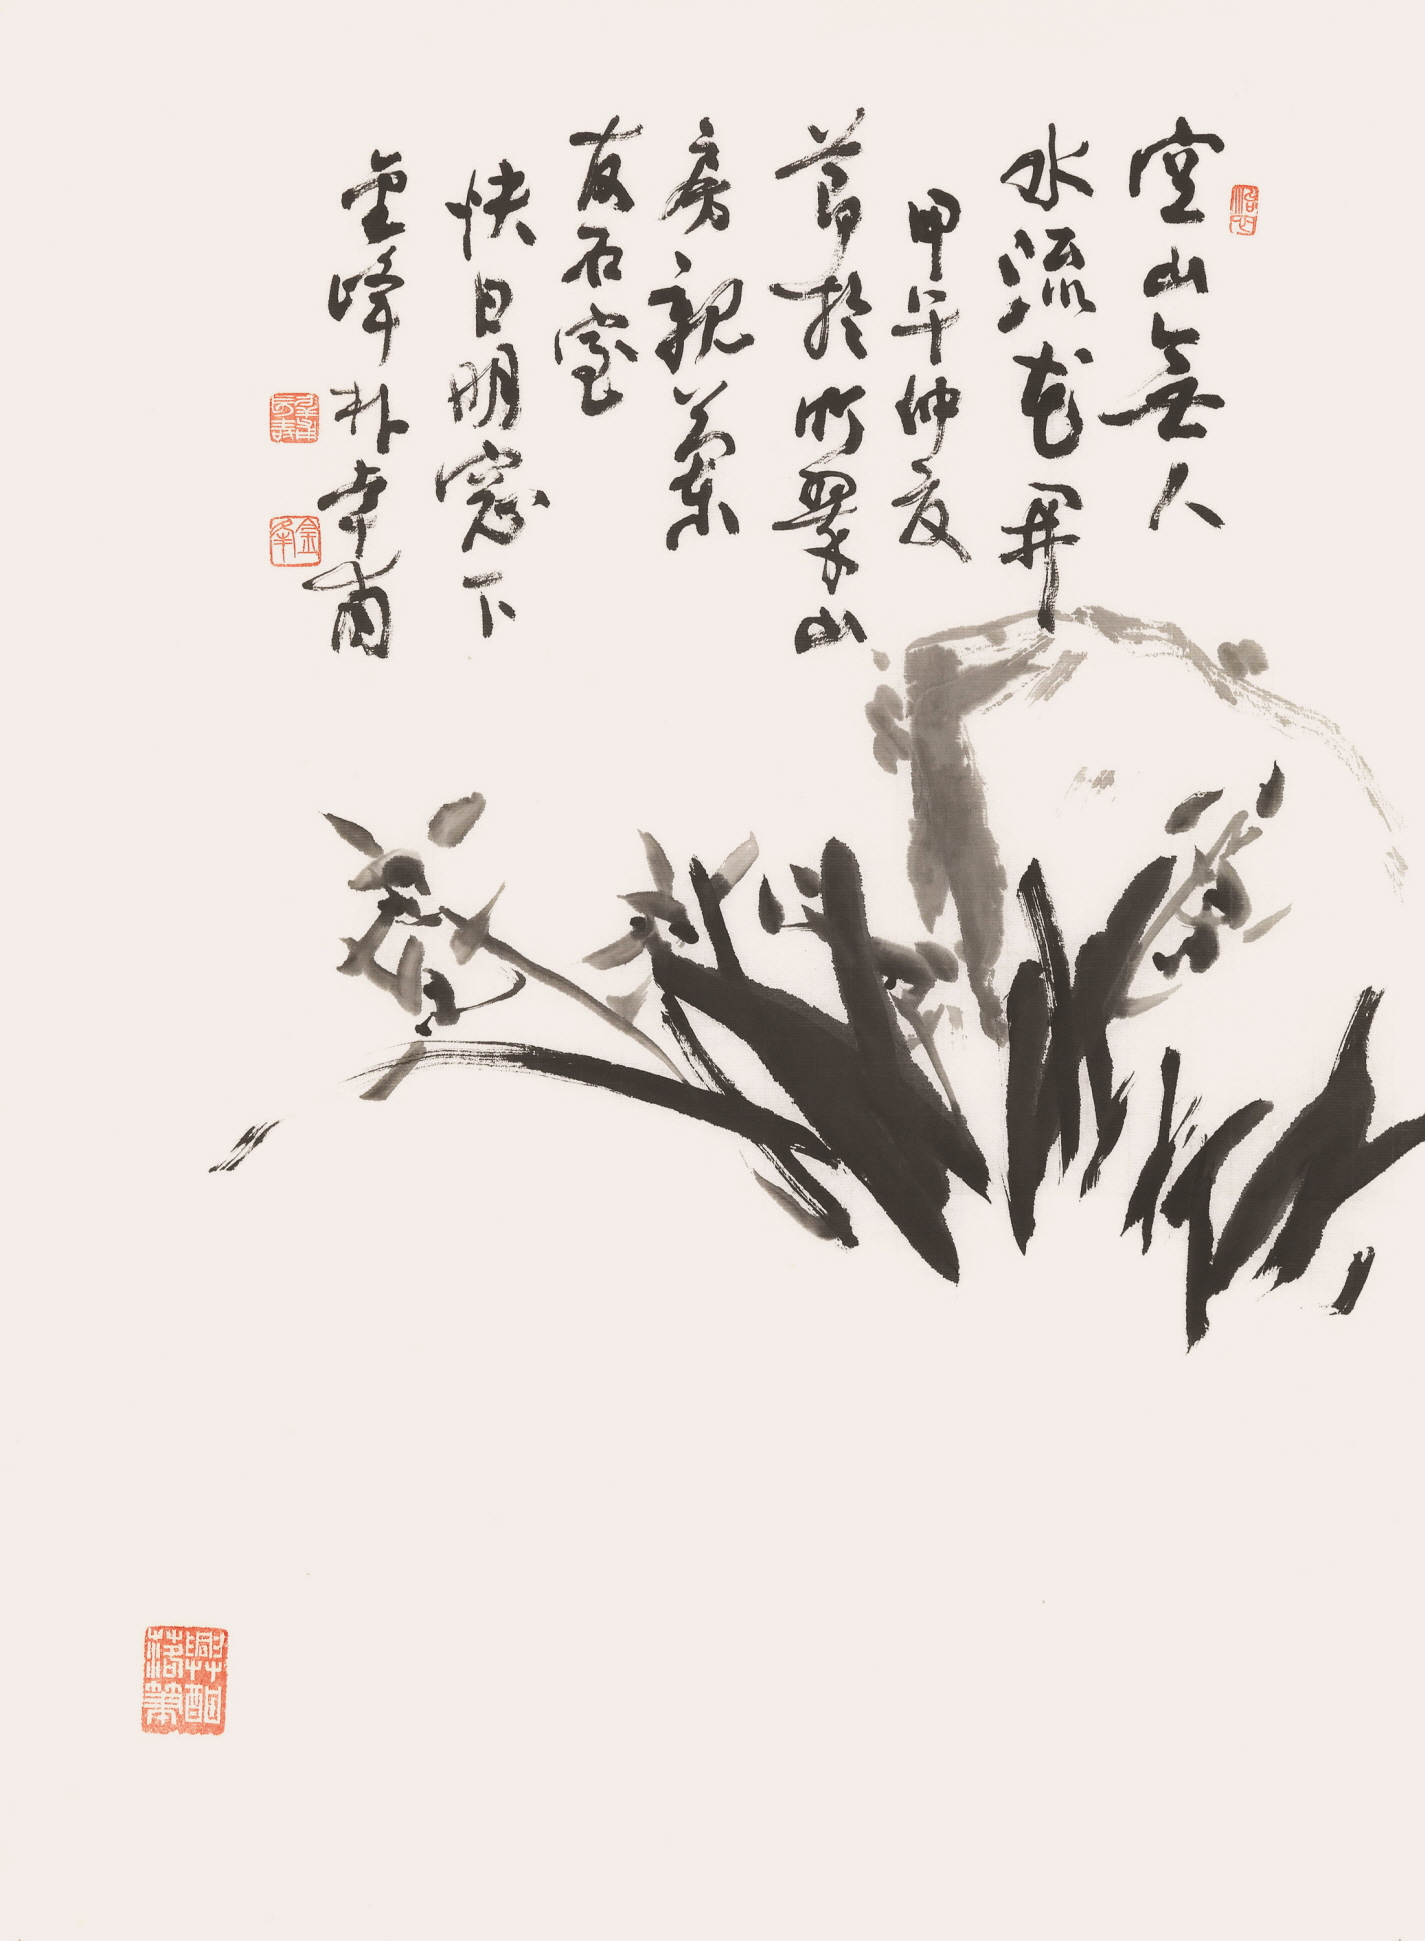 空山無人
水流花開
甲午仲夏
節於竹翠山
房親蘭
友石室
快日明窓下
金峰朴幸甫